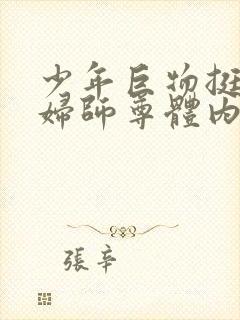 少年巨物挺
婦師尊體內
張辛